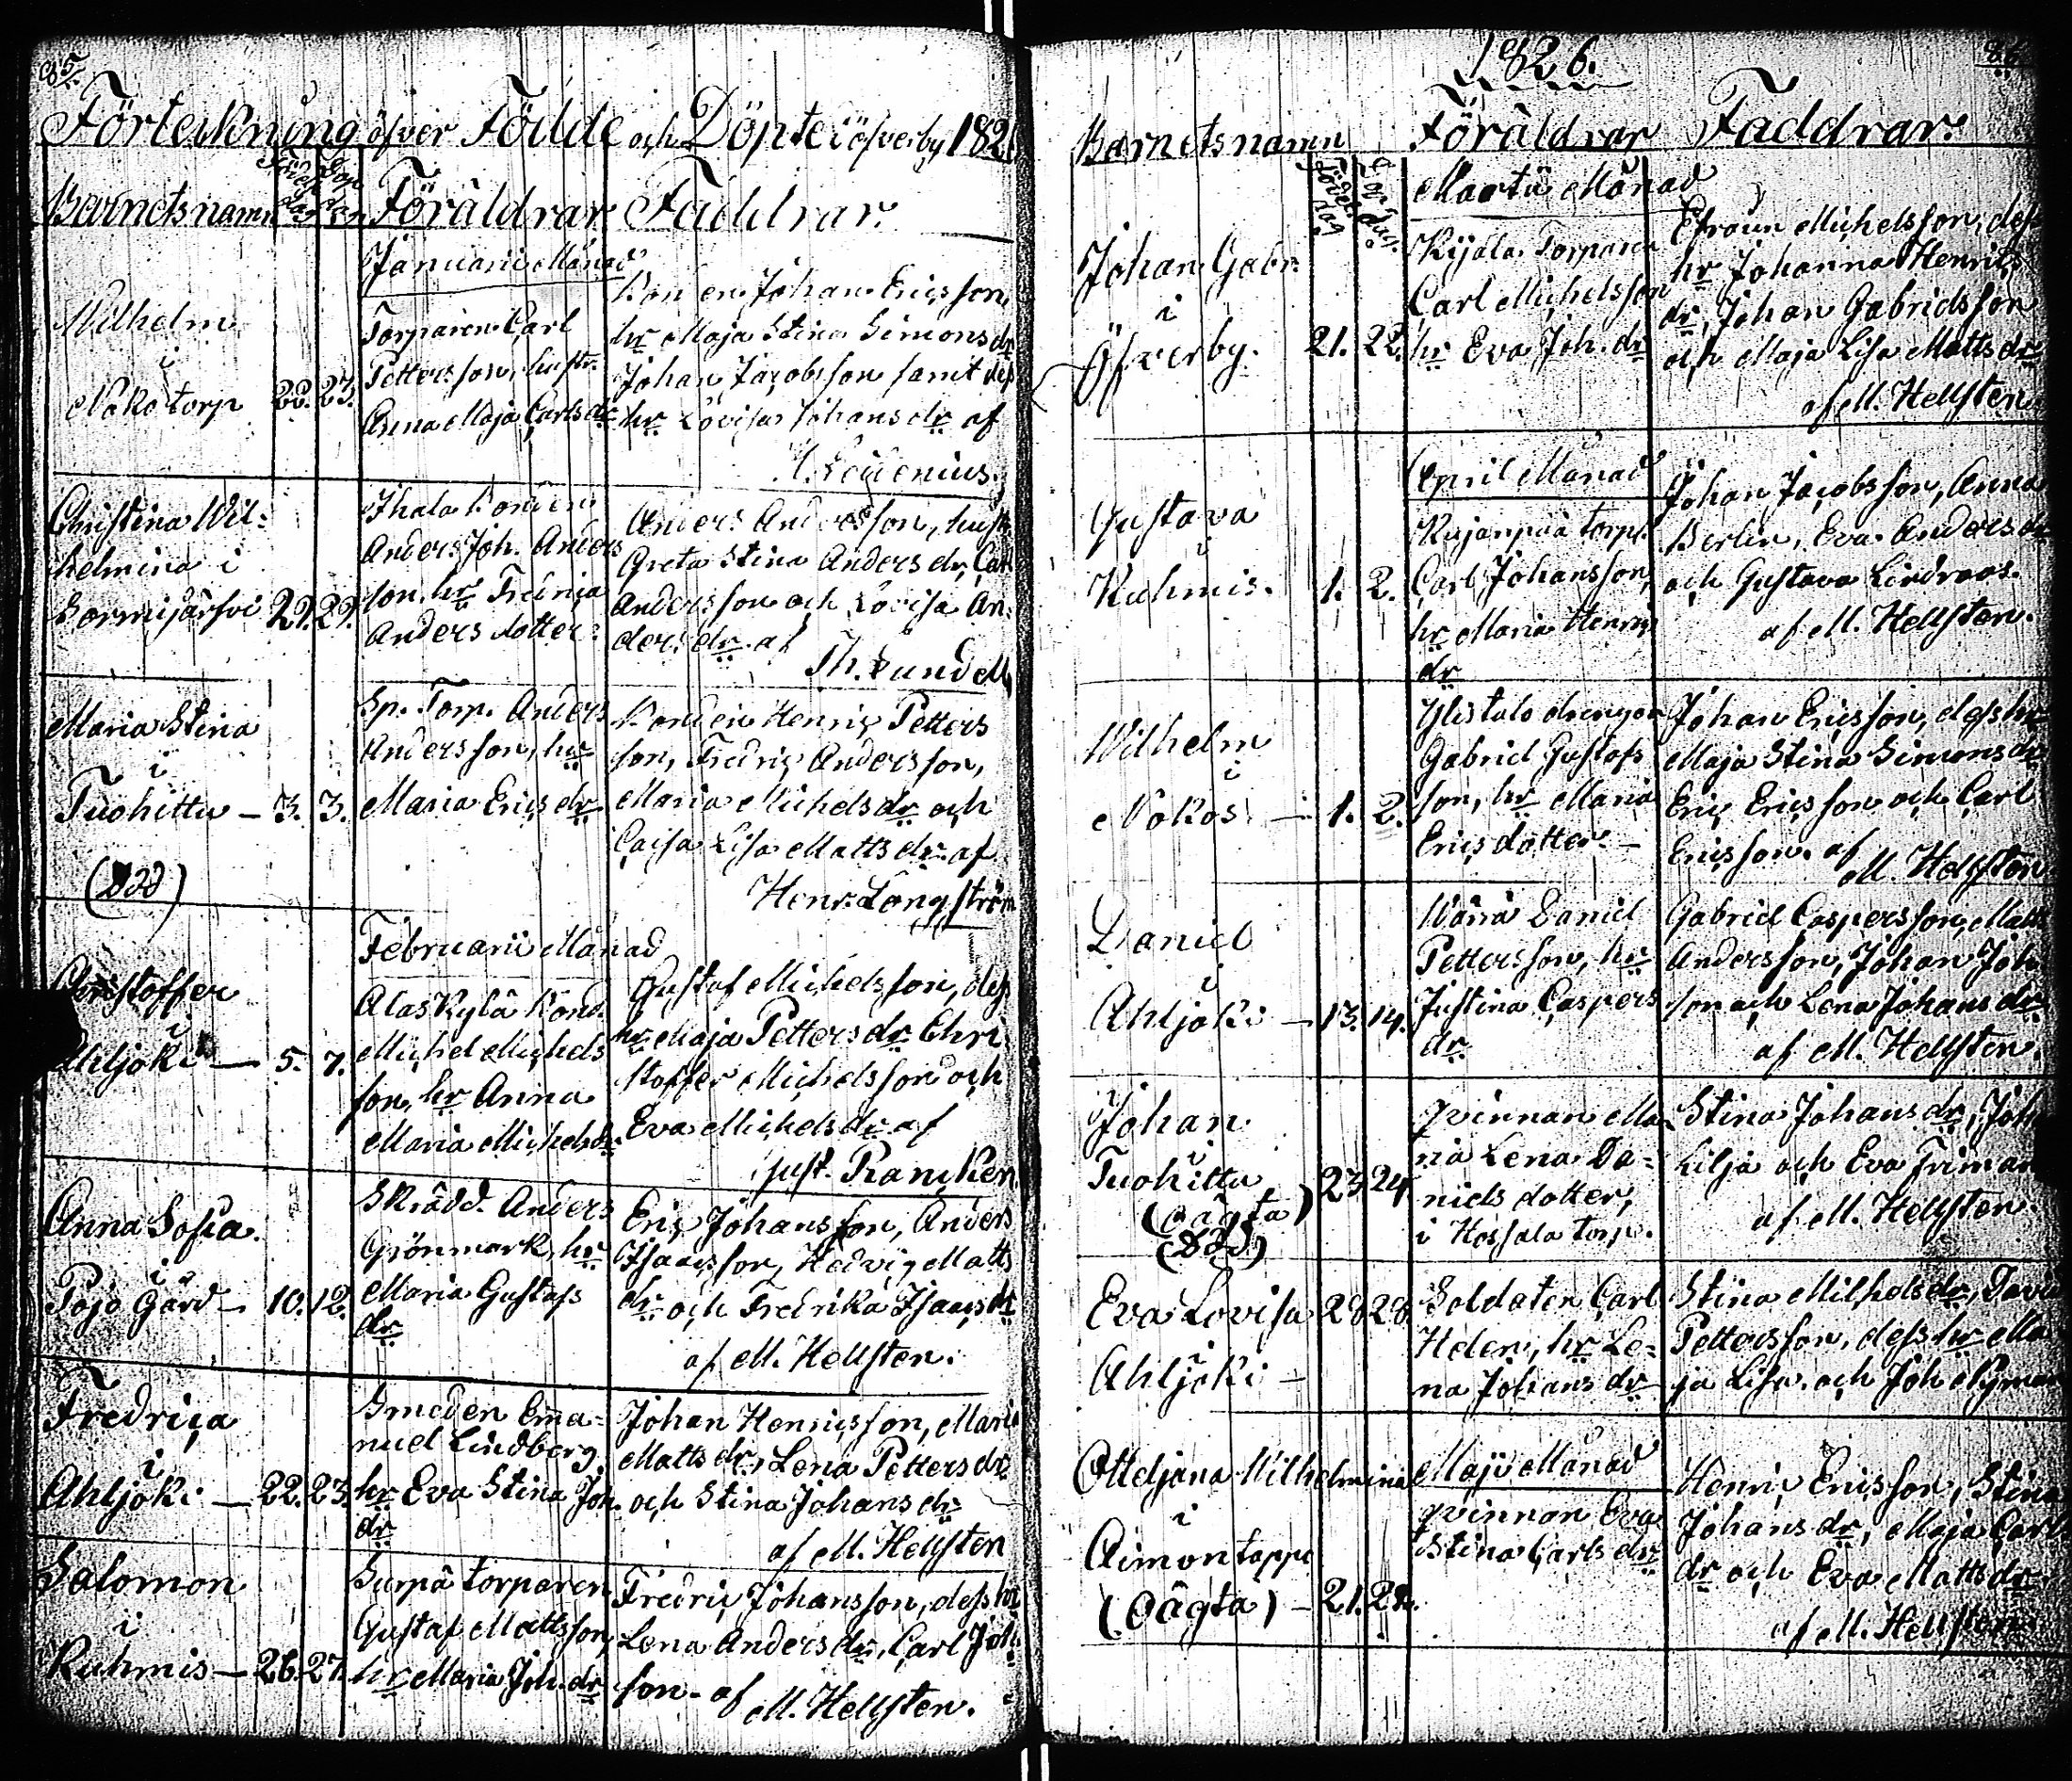 85.
Förteckning öfver Födde och Döpte i Öfverby 182
Barnets namn Föräldrar Faddrar.
Januarii Månad
Wilhelm
i
Nokotorp 22. 27.
Torparen Carl
Petters son, hustr.
Anna Maja Carls dr
Johan Ericsson,
hr Maja Stina Simons dr
Johan Jacobsson samt dess
hr Lovisa Johans dr af
Christina Wil-
helmina i
Sormijärfvi 29. 29.
Ihala Bonden
Anders Joh. Anders
son, hr Fredrica
Anders dotter.
Anders Andersson, hustr
Greta Stina Anders dr, Carl
Andersson och Lovisa An-
ders dr af
Th. Lundell
Maria Stina
i
Tuohittu – 3. 3.
(död)
Sp. Torp. Anders
Andersson, hr
Maria Erics dr
Bonden Henric Petters
son, Fredric Andersson,
Maria Michels dr och
Caisa Lisa Matts dr af
Henr. Långström
Februarii Månad
Christoffer
i
Ahljoki – 5. 7.
Alaskylä Bond.
Michel Michels
son, hr Anna
Maria Michels dr
Gustaf Michelsson, dess
hr Maja Petters dr Chri
stoffer Michelsson och
Eva Michels dr af
Gust. Rancken
Anna Sofia.
i
Pojo Gård – 10. 12.
Skrädd. Anders
Grönmark, hr
Maria Gustafs
dr
Eric Johansson, Anders
Isaacsson, Hedvig Matts
dr och Fredrika Isaacs dr
af M. Hellsten.
Fredrica
i
Ahljoki – 22. 23.
Smeden Ema-
nuel Lindberg,
hr Eva Stina Joh.
dr
Johan Henricsson, Maria
Matts dr, Lena Petters dr
och Stina Johans dr
af M. Hellsten
Salomon
i
Kuhmis – 26. 27.
Surpå torparen
Gustaf Mattsson,
hr Maria Joh. dr
Fredric Johansson, dess hr
Lena Anders dr, Carl Joh.
son – af
M. Hellsten.
1826.
86
Barnets namn Föräldrar Faddrar.
Födelsedag
Martii Månad
Johan Gabr.
i
Öfverby. 21. 22.
Kyala Torparen
Carl Michelsson
hr Eva Joh. dr
Efraim Michelsson, dess
hr Johanna Henrics
dr, Johan Gabrielsson
och Maja Lisa Matts dr
af M. Hellsten
April Månad
Gustava
i
Kuhmis. 1. 2.
Kujanpää torp.
Carl Johansson,
hr Maria Henrics
dr
Johan Jacobsson, Anna
Berlin, Eva Anders dr
och Gustava Lindroos.
af M. Hellsten.
Wilhelm
i
Nokos – 1. 2.
Ylistalo drengen
Gabriel Gustafs
son, hr Maria
Erics dotter –
Johan Ericsson, dess hr
Maja Stina Simons dr
Eric Ericsson och Carl
Ericsson. af
M. Hellsten
Daniel
i
Ahljoki – 13. 14.
Daniel
Petters son, hr
Justina Caspers
dr
Gabriel Caspersson, Matts
Andersson, Johan Joh.
son och Lena Johans dr
af M. Hellsten.
Johan
i
Tuohittu 23. 24.
(oägta)
(död)
Qvinnan Ma
ria Lena Da-
niels dotter,
i Kossala torp.
Stina Johans dr, Joh.
Lilja och Eva Friman
af M. Hellsten.
Eva Lovisa 28 28.
i
Ahljoki –
Soldaten Carl
Heden, hr Le-
na Johans dr
Stina Michels dr, David
Pettersson, dess hr Ma
ja Lisa och Joh.
Maji Månad
Otteljana Wilhelmina
i
Aimontappi
(Oägta) – 21. 22.
Qvinnan Eva
Stina Carls dr
Henric Ericsson, Stina
Johans dr, Maja Carls
dr och Eva Matts dr
af M. Hellsten.